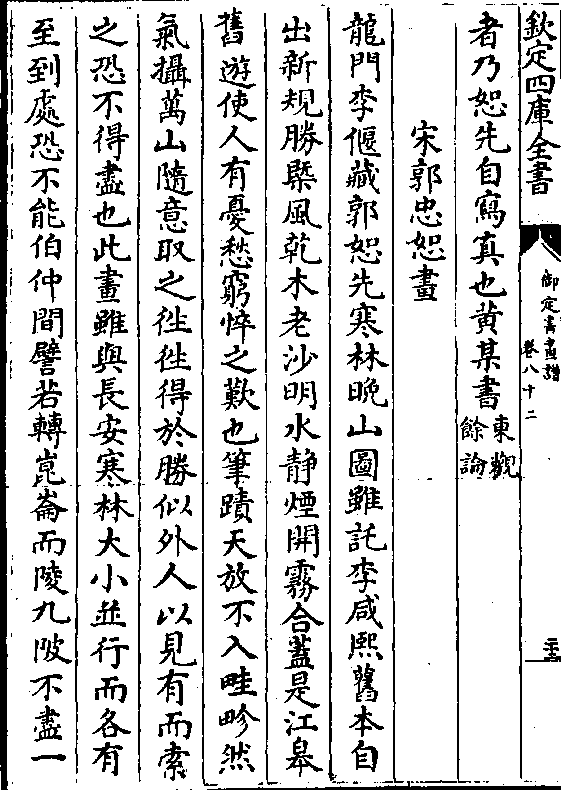 欽定四庫全書
御定書畫譜
卷八十二
者乃恕先自寫真也黄某書東觀餘論
宋郭忠恕畫
龍門李偃藏郭恕先寒林晩山圖雖託李咸熙舊本自
出新規勝槩風乾木老沙明水静煙開霧合蓋是江臯
舊遊使人有憂愁窮悴之歎也筆蹟天放不入畦畛然
氣攝萬山隨意取之徃徃得於勝似外人以見有而索
之恐不得盡也此畫雖與長安寒林大小並行而各有
至到處恐不能伯仲間譬若轉崑崙而陵九陂不盡一